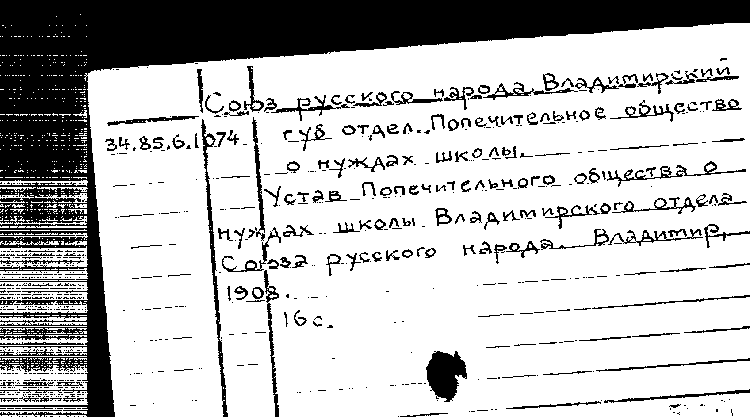 Союз русского народа. Владимирский
34.85.6.1074 губ отдел. Попечительное общество
о нуждах школы.
Устав Попечительного общества о
нуждах школы Владимирского отдела
Союза русского народа. Владимир,
1908.
16 с.